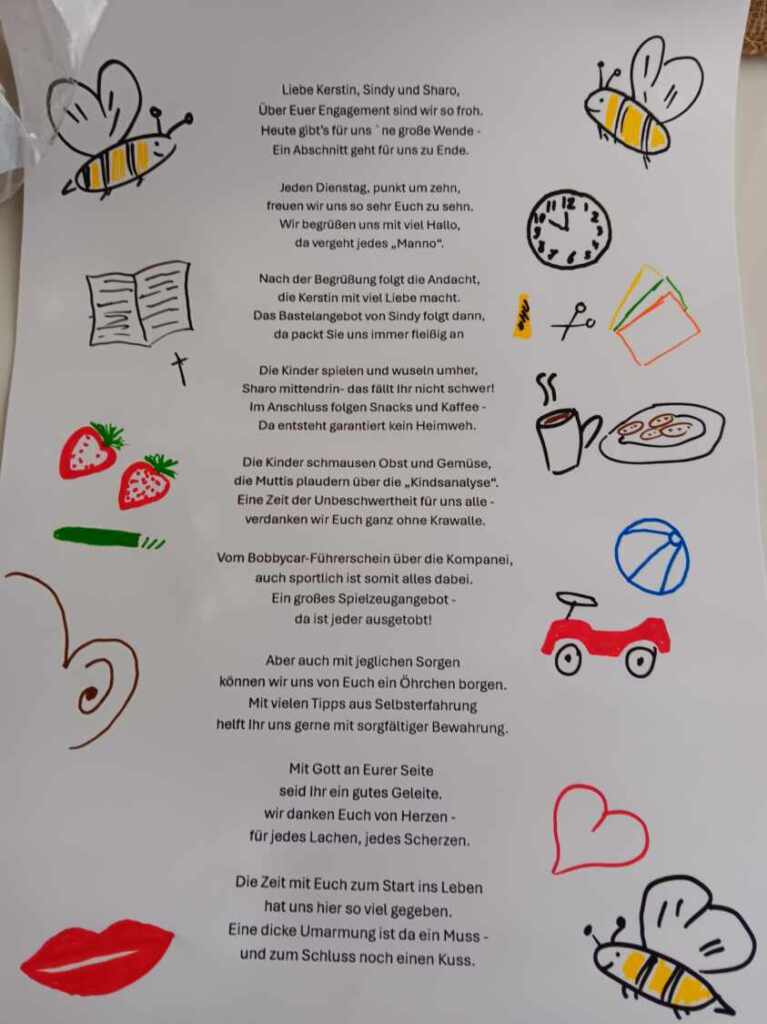 Liebe Kerstin, Sindy und Sharo,
Über Euer Engagement sind wir so froh.
Heute gibt's für uns `ne große Wende -
Ein Abschnitt geht für uns zu Ende.
Jeden Dienstag, punkt um zehn,
freuen wir uns so sehr Euch zu sehn.
Wir begrüßen uns mit viel Hallo,
da vergeht jedes „Manno“.
Nach der Begrüßung folgt die Andacht,
die Kerstin mit viel Liebe macht.
Das Bastelangebot von Sindy folgt dann,
da packt Sie uns immer fleißig an
Die Kinder spielen und wuseln umher,
Sharo mittendrin- das fällt Ihr nicht schwer!
Im Anschluss folgen Snacks und Kaffee -
Da entsteht garantiert kein Heimweh.
Die Kinder schmausen Obst und Gemüse,
die Muttis plaudern über die „Kindsanalyse“.
Eine Zeit der Unbeschwertheit für uns alle -
verdanken wir Euch ganz ohne Krawalle.
Vom Bobbycar-Führerschein über die Kompanei,
auch sportlich ist somit alles dabei.
Ein großes Spielzeugangebot -
da ist jeder ausgetobt!
Aber auch mit jeglichen Sorgen
können wir uns von Euch ein Öhrchen borgen.
Mit vielen Tipps aus Selbsterfahrung
helft Ihr uns gerne mit sorgfältiger Bewahrung.
Mit Gott an Eurer Seite
seid Ihr ein gutes Geleite.
wir danken Euch von Herzen -
für jedes Lachen, jedes Scherzen.
Die Zeit mit Euch zum Start ins Leben
hat uns hier so viel gegeben.
Eine dicke Umarmung ist da ein Muss -
und zum Schluss noch einen Kuss.
11 12 1
10 2
9 3
8 4
7 6 5